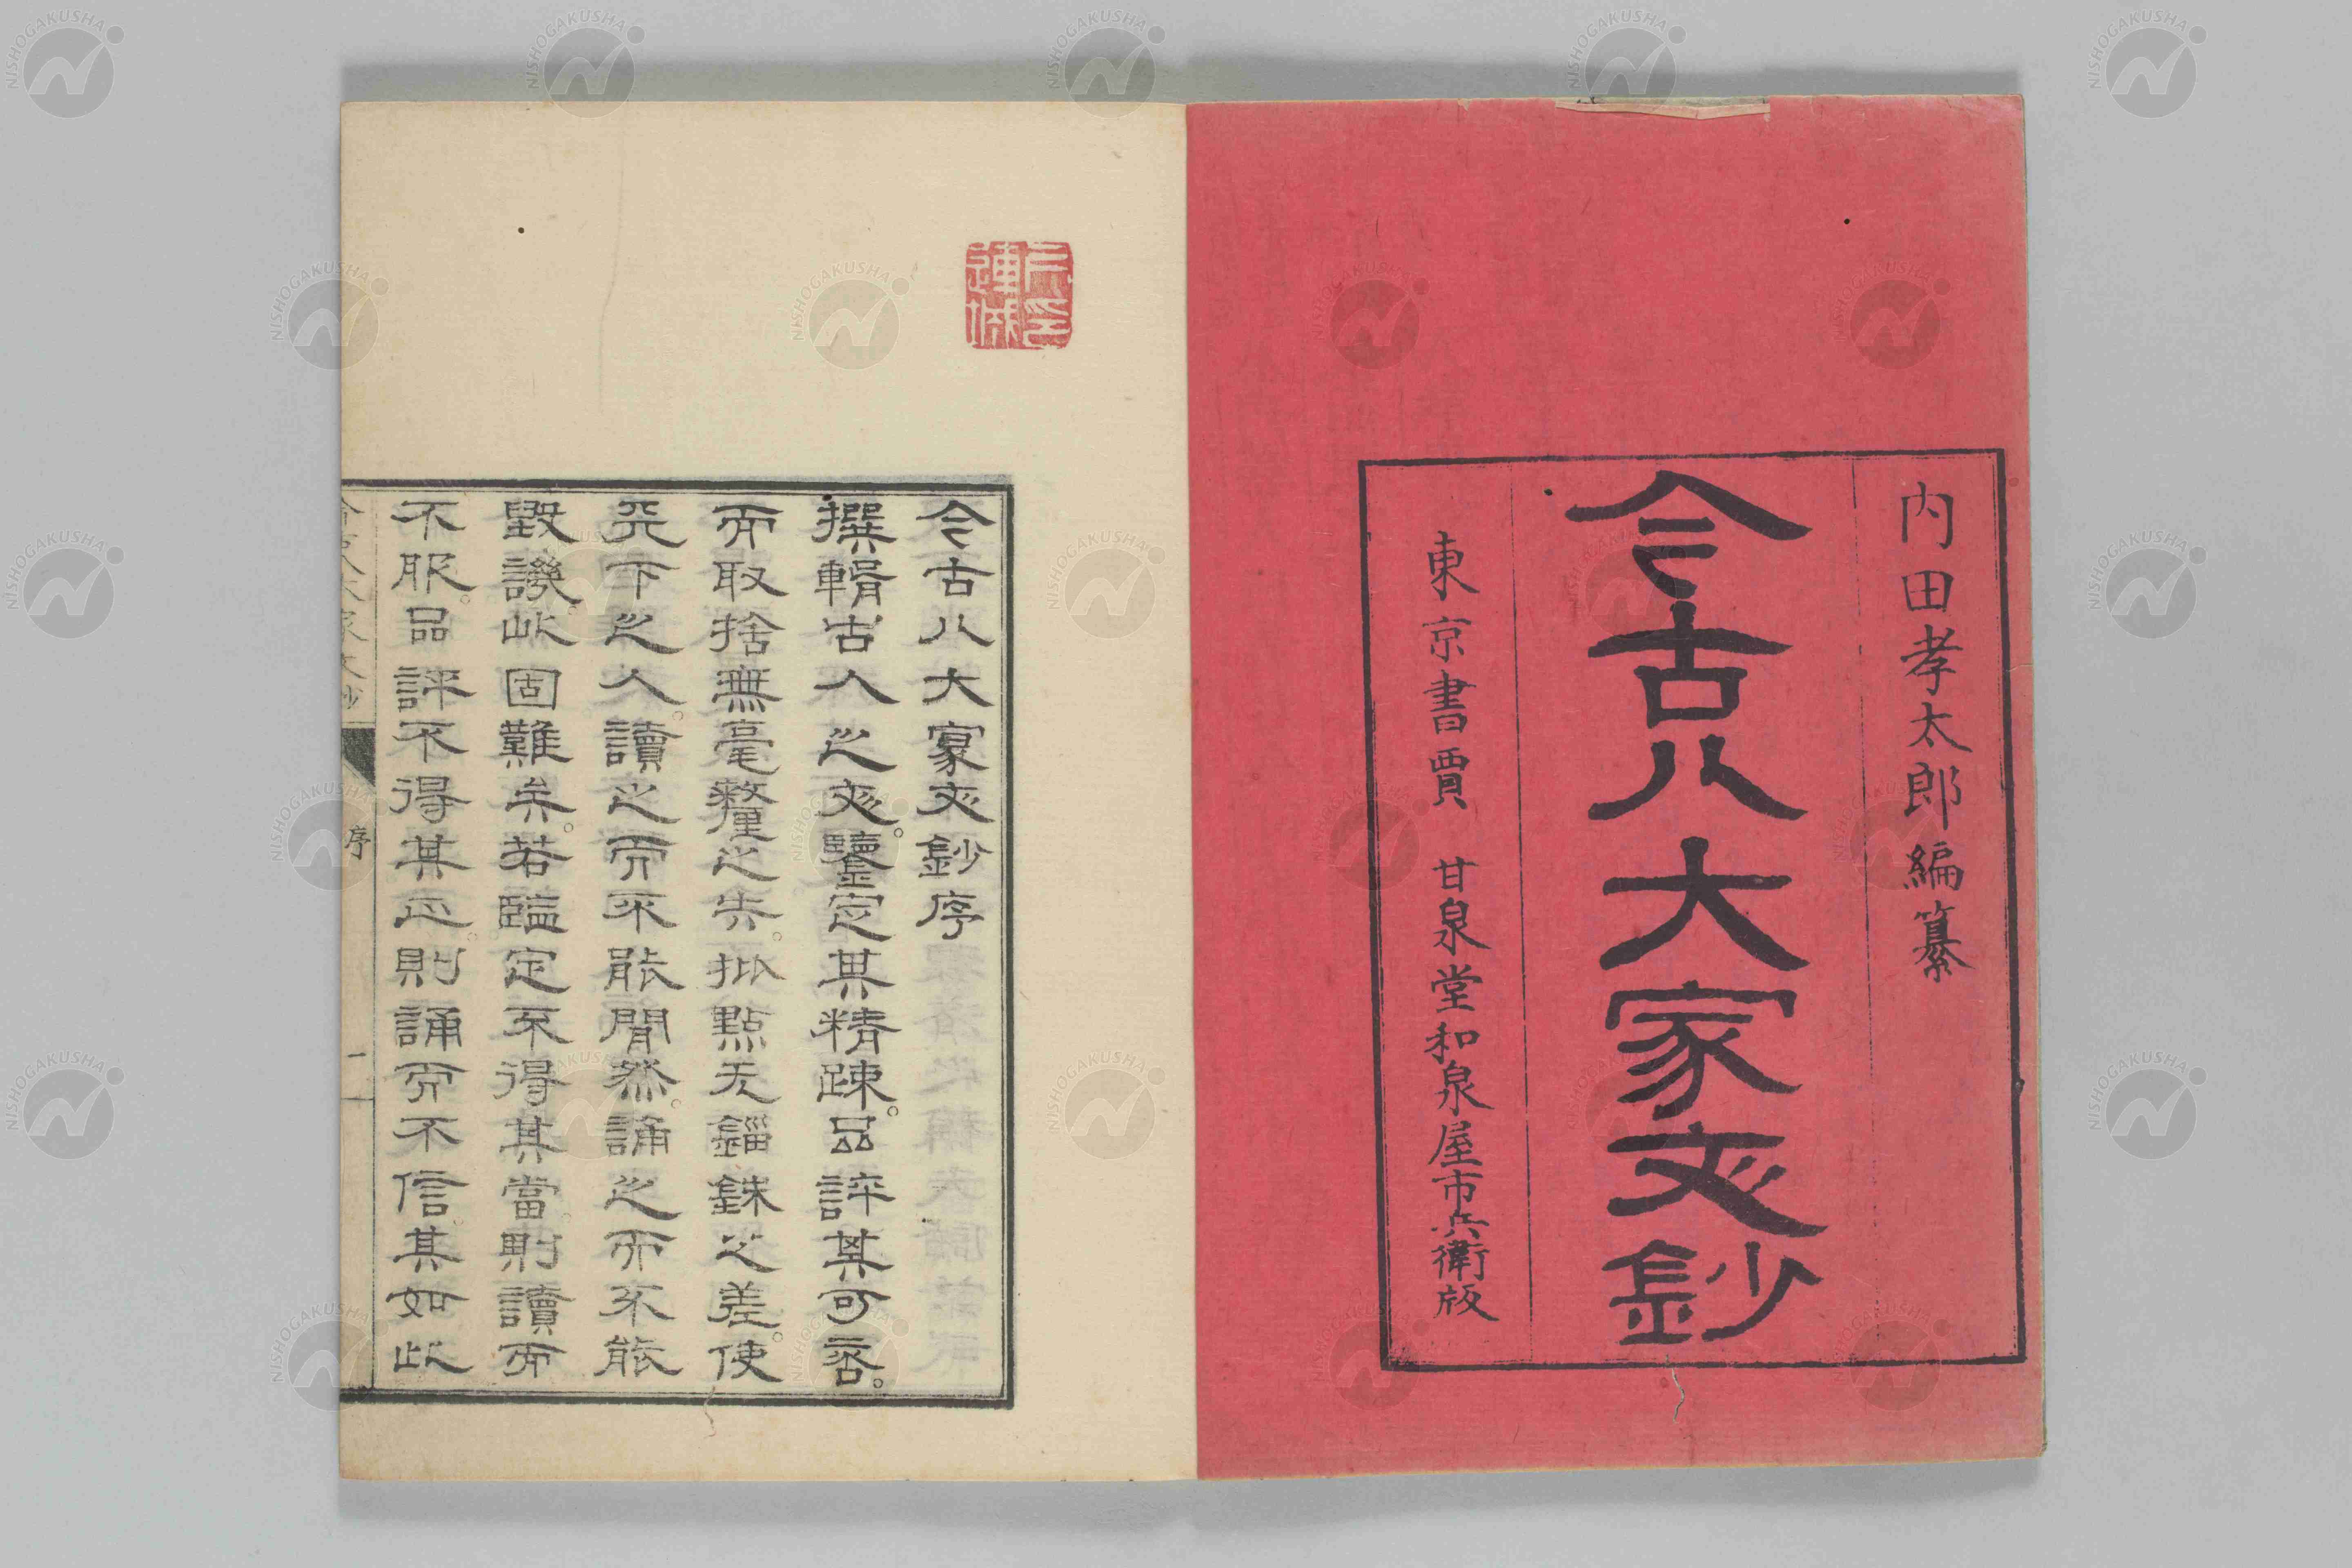 内田孝太郎編纂
今古八大家文鈔
東京書賈 甘泉堂和泉屋市兵衛版
今古八大家文鈔序
撰輯古人之文。鑒定其精疎。品評其可否。
而取捨無毫釐之失。批點无錙銖之差。使
天下之人。讀之而不能間然。誦之而不能
毀譏。此固難矣。若臨定不得其當。則讀而
不服。品評不得其正。則誦而不信。其如此
今古八大家文鈔
序
一
NISHOGAKUSHA